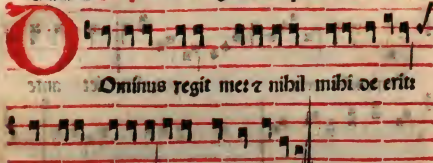 Dominus regit me: ⁊ nihil mihi de erit: